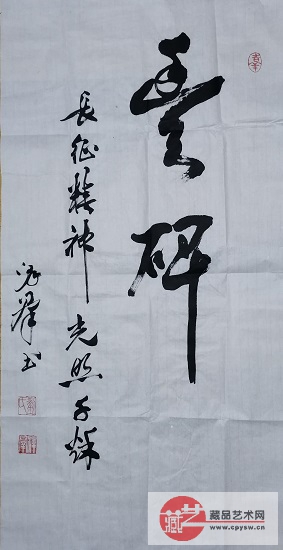 豐碑
長征精神 光照千秋
书
藏品艺术网
www.cpysw.cn